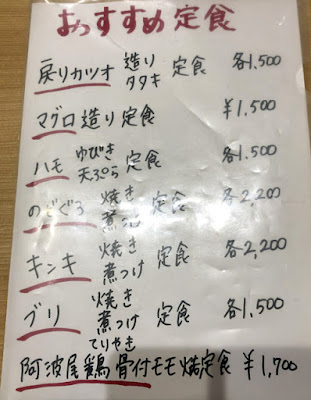 おすすめ定食
戻りカツオ 造り タタキ 定食 各1,500
マグロ造り定食 ¥1,500
ハモ ゆびき 天ぷら 定食 各1,500
のどぐろ 焼き 煮つけ 定食 各2,200
キンキ 焼き 煮つけ 定食 各2,200
ブリ 焼き 煮つけ てりやき 定食 各1,500
阿波尾鶏 骨付モモ焼定食 ¥1,700